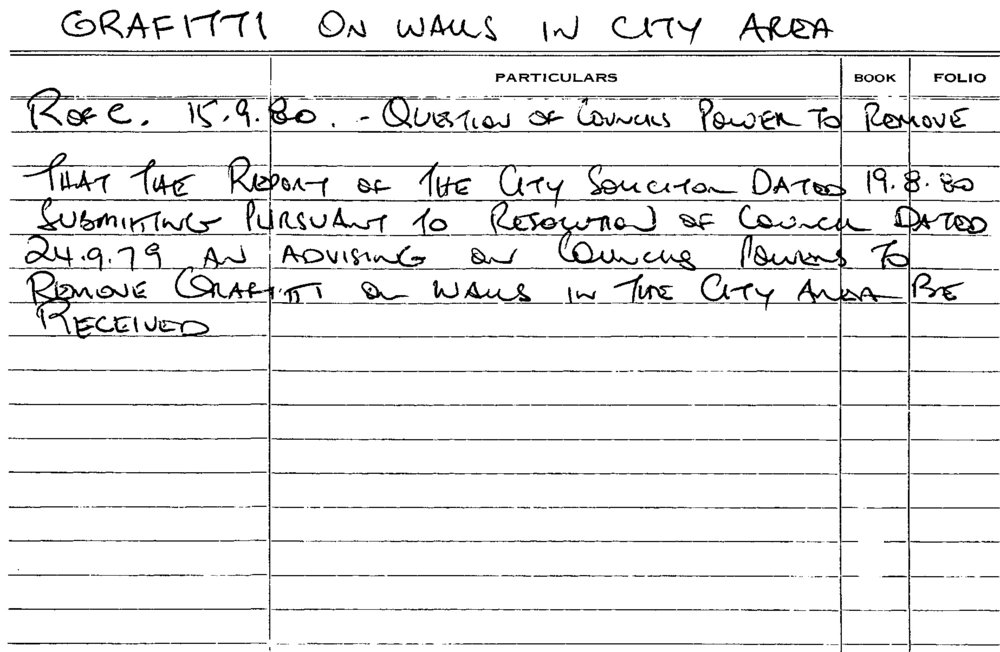 GRAFITTI ON WALLS IN CITY AREA
PARTICULARS BOOK FOLIO
R OF C. 15.9.80. - QUESTION OF COUNCILS POWER TO REMOVE
THAT THE REPORT OF THE CITY SOLICITOR DATED 19.8.80
SUBMITTING PURSUANT TO RESOLUTION OF COUNCIL DATED
24.9.79 AN ADVISING ON COUNCILS POWERS TO
REMOVE GRAFITTI ON WALLS IN THE CITY AREA BE
RECEIVED